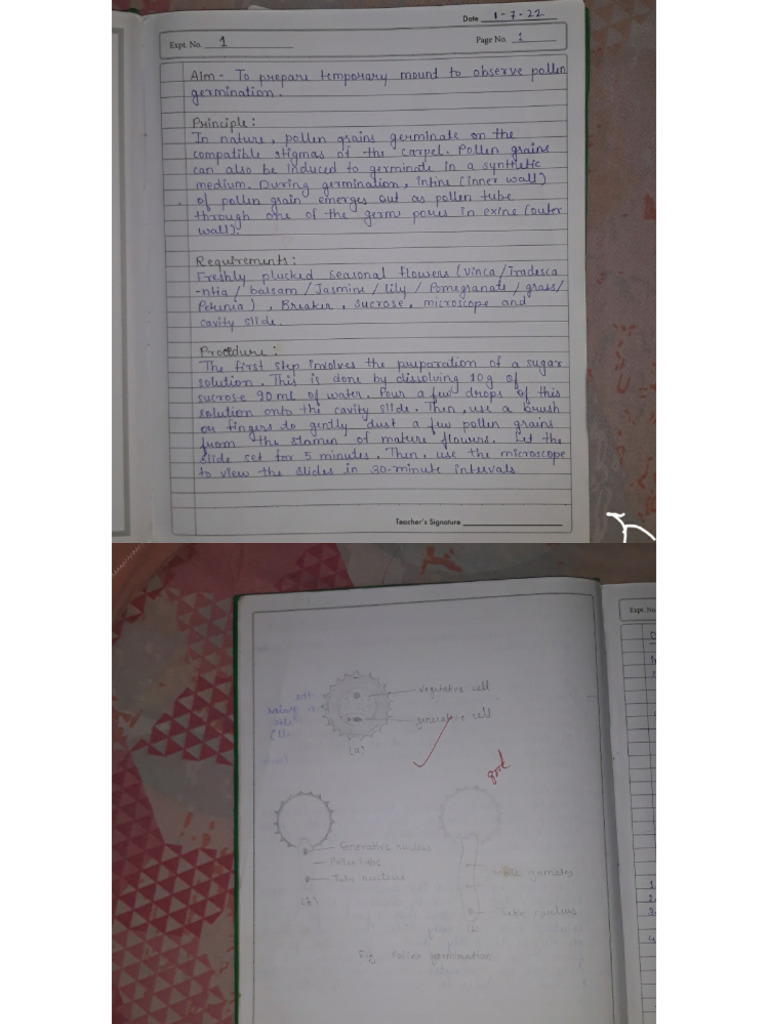 Date 1-7-22
Expt. No. 1
Page No. 1
Aim - To prepare temporary mount to observe pollen
germination.
Principle:
In nature, pollen grains germinate on the
compatible stigmas of the carpel. Pollen grains
can also be induced to germinate in a synthetic
medium. During germination, intine (inner wall)
of pollen grain emerges out as pollen tube
through one of the germ pores in exine (outer
wall).
Requirements:
Freshly plucked seasonal flowers (vinca/Tradesca
-ntia / balsam / Jasmine / lily / Pomegranate / grass/
Petunia), Breaker, sucrose, microscope and
cavity slide.
Procedure:
The first step involves the preparation of a sugar
solution. This is done by dissolving 10g of
sucrose 90 ml of water. Pour a few drops of this
solution onto the cavity slide. Then, use a brush
or fingers to gently dust a few pollen grains
from the stamen of mature flowers. Let the
slide set for 5 minutes. Then, use the microscope
to view the slides in 30-minute intervals
Teacher's Signature
Expt. No
vegetative cell
generative cell
(a)
good
Generative nucleus
Pollen tube
Tube nucleus
(b)
male gametes
Tube nucleus
Fig. Pollen germination
1
2
3
4